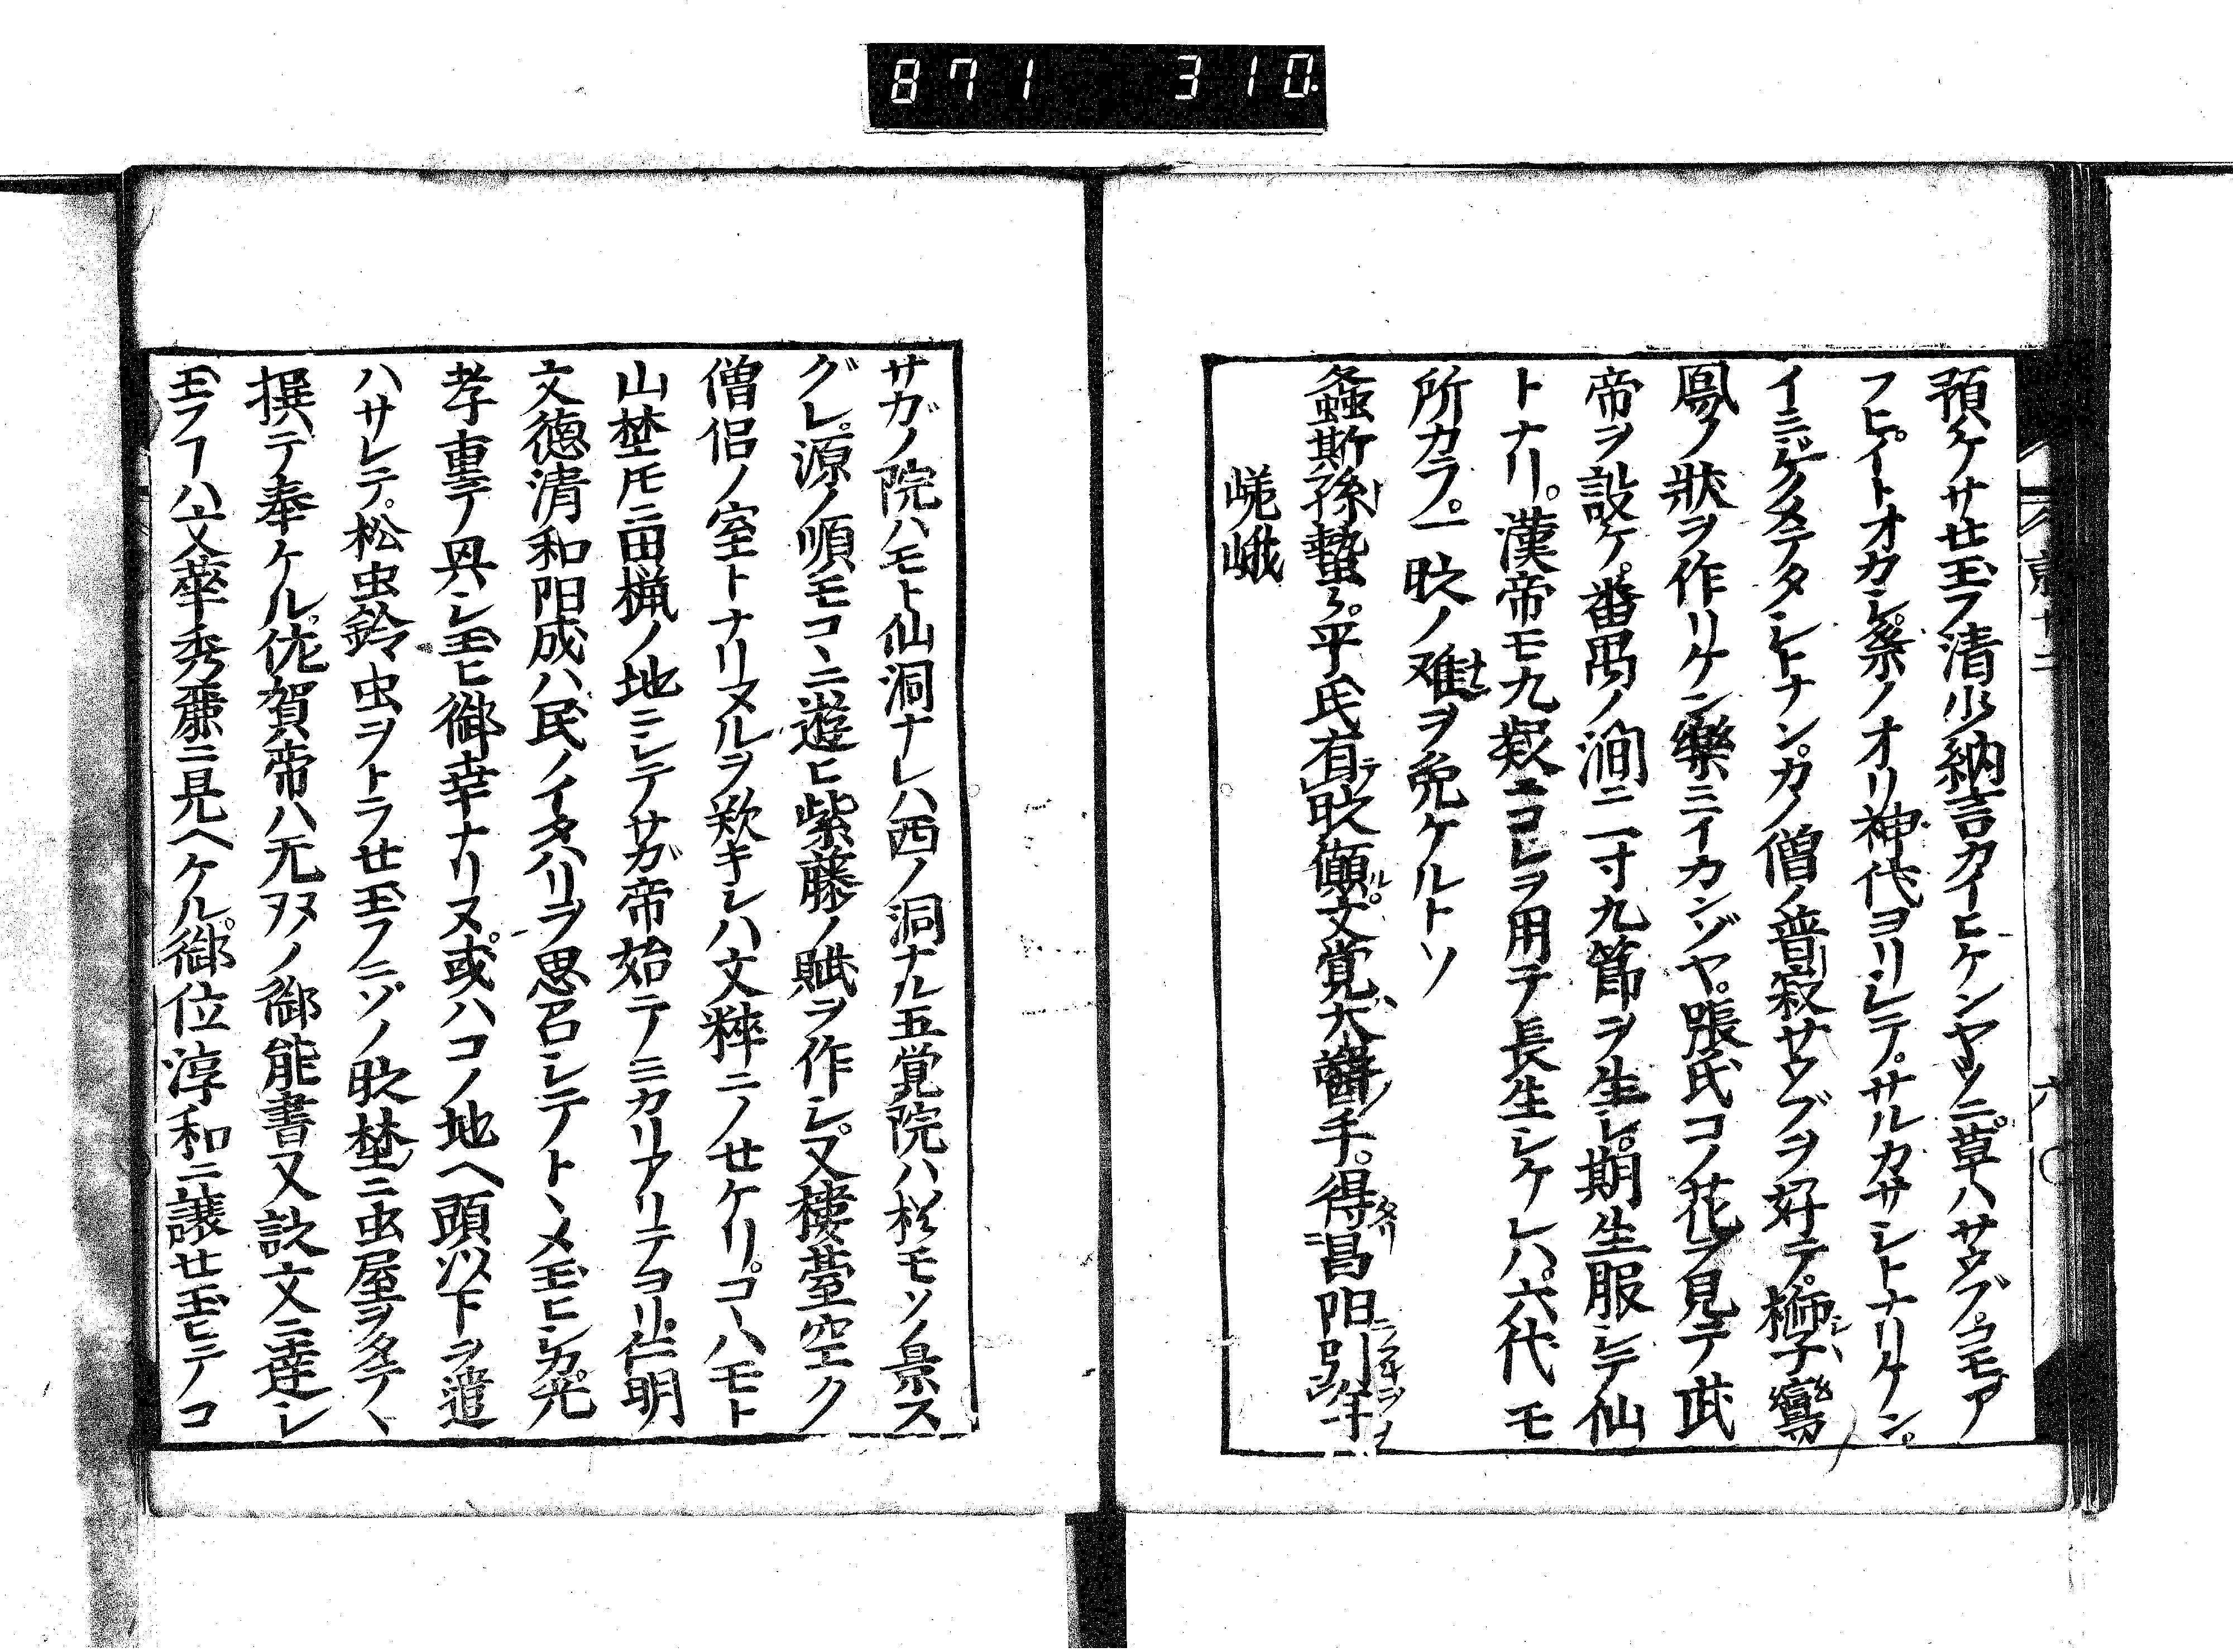 871 310
預ケサせ玉フ清少納言カイヒケンヤウニ。草ハサウブ。コモ。ア
フヒ。イトオカシ。祭ノオリ神代ヨリシテ。サルカサシトナリケン。
イミヅケメテタシトナン。カノ僧ノ普寂サウブヲ好テ。獅子鸞
鳳ノ狀ヲ作リケン樂ミイカンゾヤ。張氏コノ花ヲ見テ武
帝ヲ設ケ。番禺ノ澗ニ一寸九節ヲ生シ。期生服シテ仙
トナリ。漢帝モ九疑ニコレヲ用テ長生シケレハ。六代モ
所カラ。一時ノ難ヲ免ケルトソ
螽斯孫蟄々。平氏有時傾。文覚大醫手。得昌陽引年
嵯峨
サガノ院ハモト仙洞ナレハ西ノ洞ナル五覚院ハ松モソノ景ス
グレ。源ノ順モコヽニ遊ヒ紫藤ノ賦ヲ作シ。又樓臺空ク
僧侶ノ室トナリヌルヲ歎キシハ文粹ニノせケリ。コヽハモト
山埜ニ田猟ノ地ニシテサガ帝始テノミカリアリテヨリ。仁明
文徳清和陽成ハ民ノイタハリヲ思召シテトヽメ玉ヒシカ。光
孝重テノ興シ玉ヒ御幸ナリヌ。或ハコノ地ヘ頭以下ヲ遣
ハサレテ。松虫鈴虫ヲトラせ玉フニゾノ時埜ニ虫屋ヲタテヽ
撰テ奉ケル。佐賀帝ハ无双ノ御能書又詩文ニ達シ
玉フフハ文華秀麗ニ見ヘケル。御位淳和ニ譲せ玉ヒテノコ